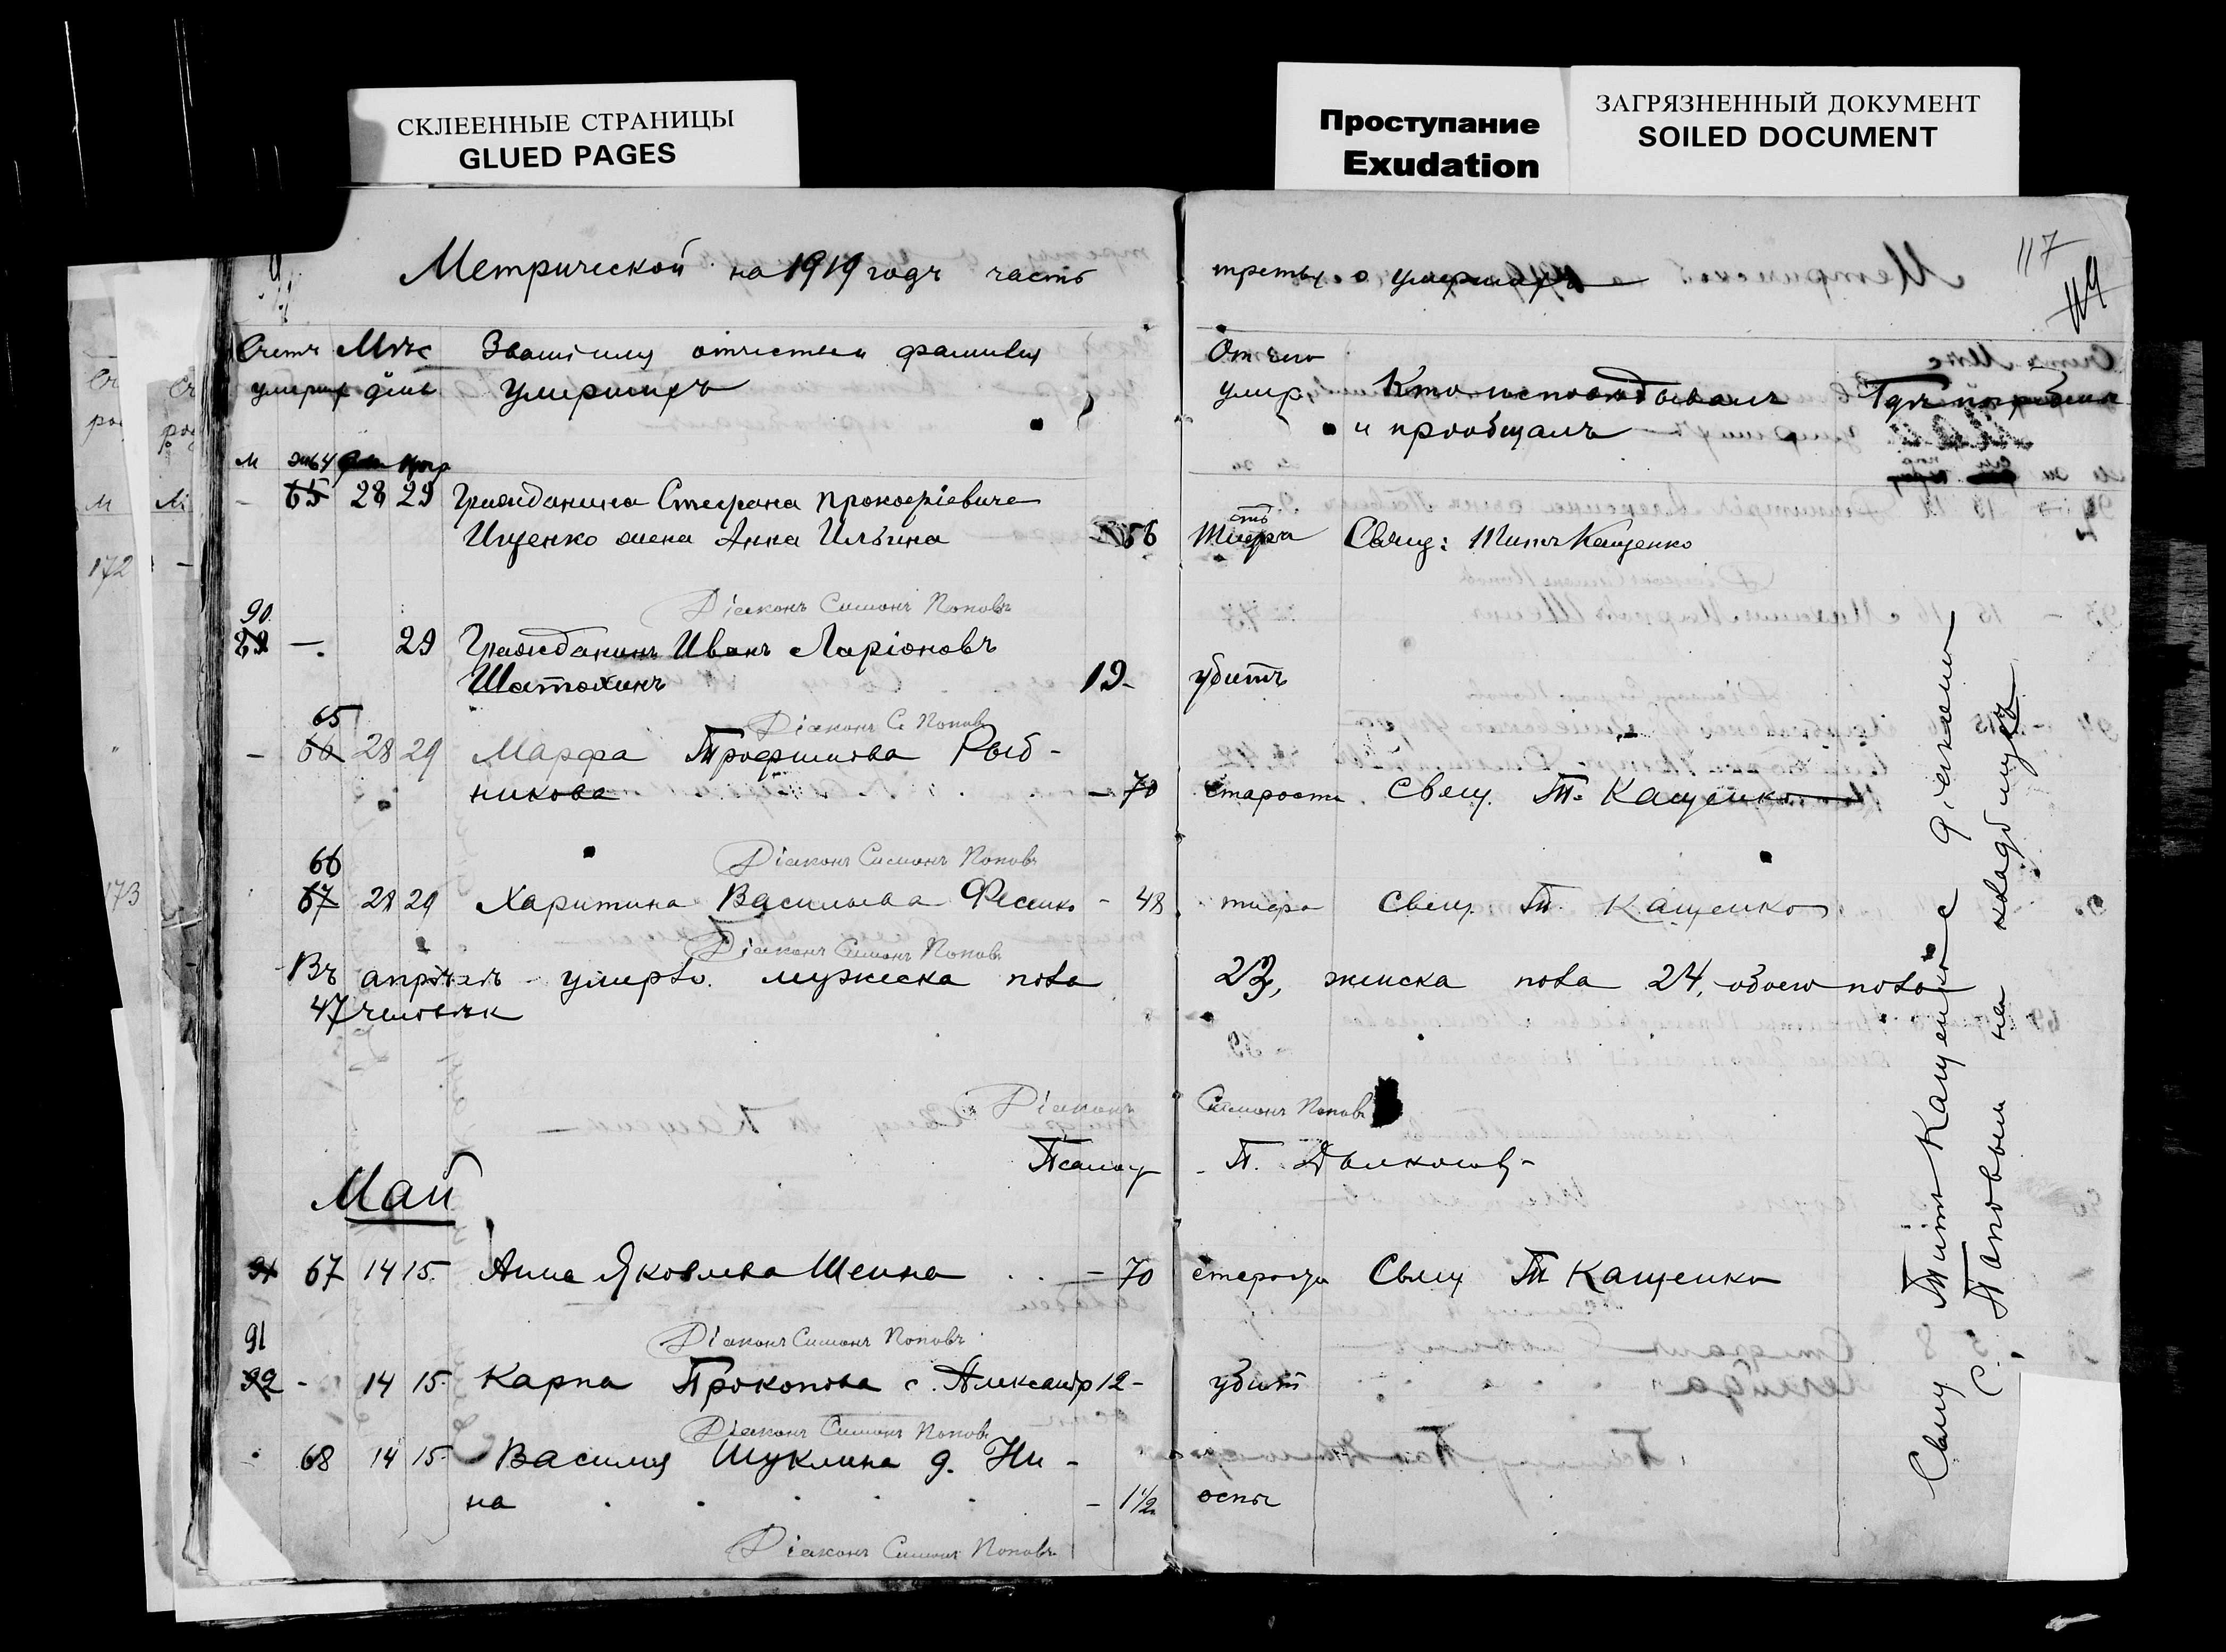 СКЛЕЕННЫЕ СТРАНИЦЫ
GLUED PAGES
Проступание
Exudation
ЗАГРЯЗНЕННЫЙ ДОКУМЕНТ
SOILED DOCUMENT
117
Метрической на 1919 годъ часть третья о умершихъ
Счетъ умерш
Мѣс день
умершихъ
Отъ чего умир
Кто исповѣдывалъ и приобщалъ
Гдѣ погребены
м
64
65 28 29 Гражданина Стефана Прокофіевича
Ищенко жена Анна Ильина 56 Свящ: Титъ Кащенко
Діаконъ Симонъ Поповъ
90
29 Гражданинъ Иванъ Ларіоновъ
Шатохинъ 19- убитъ
Діаконъ С. Поповъ
65
- 66 28 29 Марфа Трофимова Рыб-
никова - 70 старости Свящ. Т. Кащенко
Діаконъ Симонъ Поповъ
66
67 28 29 Харитина Васильева Фесенко - 48 Свящ. Т. Кащенко
Діаконъ Симонъ Поповъ
Въ апрѣлѣ умерло мужеска пола 23, женска пола 24, обоего пола
47 человѣк
Діаконъ Симонъ Поповъ
Псаломщ П.
Май
91 67 14 15 Анна Яковлева Шеина - 70 старости Свящ Т Кащенко
Діаконъ Симонъ Поповъ
91
92 - 14 15 Карпа Прокопова с. Александр 12- убит
Діаконъ Симонъ Поповъ
68 14 15 Василия Шуклина д. Ни-
на - 1½ оспы
Діаконъ Симонъ Поповъ
Свящ Титъ Кащенко с діакономъ
С. Поповым на кладбищѣ
172
173